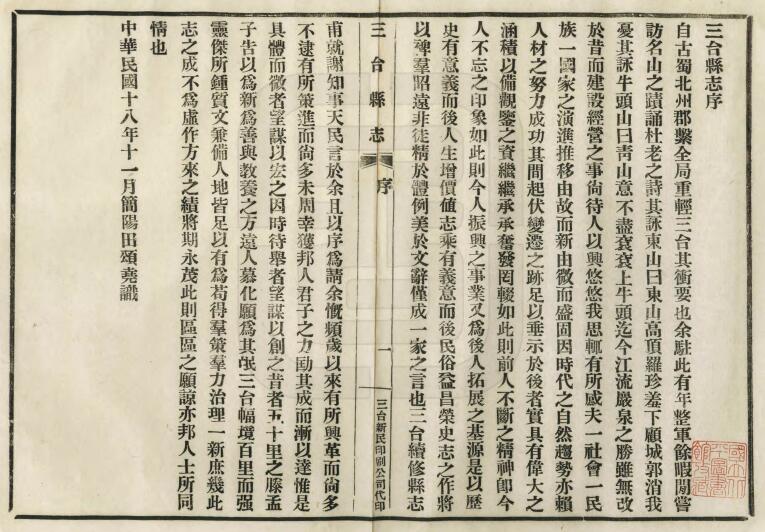 三台縣志序
自古蜀北州郡繫全局重輕三台其衝要也余駐此有年整軍餘暇間嘗
訪名山之蹟誦杜老之詩其詠東山曰東山高頂羅珍羞下顧城郭消我
憂其詠牛頭山曰靑山意不盡袞袞上牛頭迄今江流巖泉之勝雖無改
於昔而建設經營之事尙待人以興悠悠我思輒有所感夫一社會一民
族一國家之演進推移由故而新由微而盛固因時代之自然趨勢亦賴
人材之努力成功其間起伏變遷之跡足以垂示於後者實具有偉大之
涵積以備觀鑒之資繼繼承承奮發罔輟如此則前人不斷之精神卽今
人不忘之印象如此則今人振興之事業又爲後人拓展之基源是以歷
史有意義而後人生增價値志乘有義意而後民俗益昌榮史志之作將
以裨羣昭遠非徒精於體例美於文辭僅成一家之言也三台續修縣志
三台縣志
序
一
三台新民印刷公司代印
甫就謝知事天民言於余且以序爲請余慨頻歲以來有所興革而尙多
不逮有所策進而尙多未周幸獲邦人君子之力勖其成而漸以達惟是
具體而微者望謀以宏之因時待舉者望謀以創之昔者五十里之滕孟
子告以爲新爲善與教養之方遠人慕化願爲其氓三台幅境百里而强
靈傑所鍾質文兼備人地皆足以有爲苟得羣策羣力治理一新庶幾此
志之成不爲虛作方來之績將期永茂此則區區之願諒亦邦人士所同
情也
中華民國十八年十一月簡陽田頌堯識